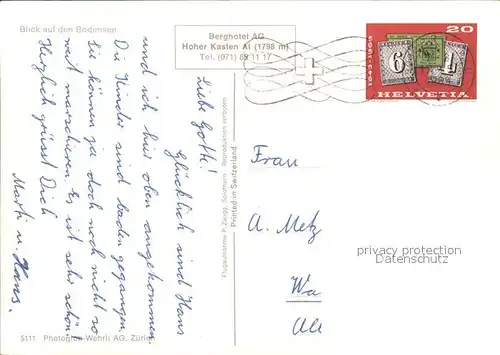 Blick auf den Bodensee
Berghotel AG
Hoher Kasten AI (1798 m)
Tel. (071) 88 11 17
20
1843-1968
6
1
HELVETIA
Liebe Gotte!
Glücklich sind Hans
und ich hier oben angekommen.
Die Kinder sind baden gegangen.
Sie können ja doch noch nicht so
weit marschieren. Es ist sehr schön!
Herzlich grüsst Dich
Marti u. Hans.
Flugaufnahme P. Zaugg, Solothurn Reproduktion verboten
Printed in Switzerland
Frau
A. Metz
Wa
privacy protection
Datenschutz
5111 Photoglob-Wehrli AG, Zürich